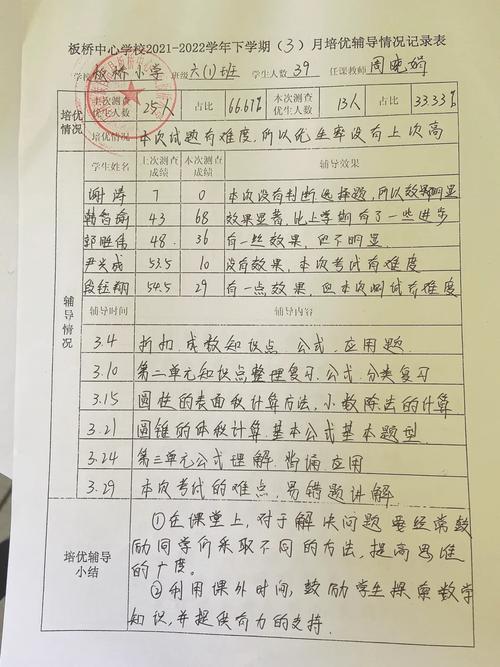 板桥中心学校2021-2022学年下学期（3）月培优辅导情况记录表
学校 板桥小学 班级 六(1)班 学生人数 39 任课教师 周晓娟
培优情况 上次测查优生人数 25人 占比 66.67% 本次测查优生人数 13人 占比 33.33%
培优情况 本次试题有难度,所以优生率没有上次高
学生姓名 上次测查成绩 本次测查成绩 辅导效果
谢涛 7 0 本次没有判断选择题,所以效果明显
韩智翰 43 68 效果显著,比上学期有了一些进步
郭胜伟 48 36 有一些效果,但不明显
尹兴成 53.5 10 没有效果,本次考试有难度
段钰翔 54.5 29 有一点效果,但本次测试有难度
辅导情况
辅导时间 辅导内容
3.4 折扣、成数知识点、公式、应用题
3.10 第二单元知识点整理复习、公式、分类复习
3.15 圆柱的表面积计算方法,小数除法的计算
3.21 圆锥的体积计算.基本公式基本题型
3.24 第三单元公式理解、背诵、应用
3.29 本次考试的难点、易错题讲解
培优辅导小结
①在课堂上,对于解决问题要经常鼓
励同学们采取不同的方法,提高思维
的广度。
②利用课外时间,鼓励学生探索数学
知识,并提供有力的支持.